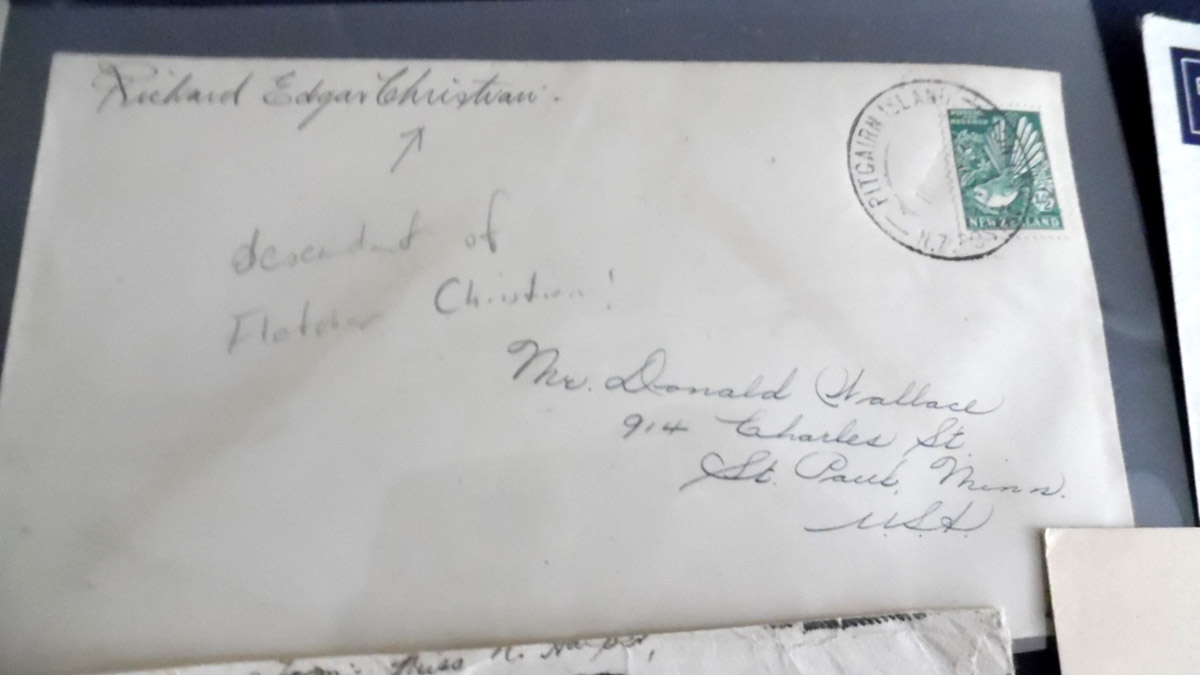 Richard Edgar Christian.
PITCAIRN ISLAND
N.Z. POST
½
NEW ZEALAND
descendent of
Fletcher Christian!
Mr. Donald Wallace
914 Charles St.
St. Paul, Minn.
U.S.A.
Miss